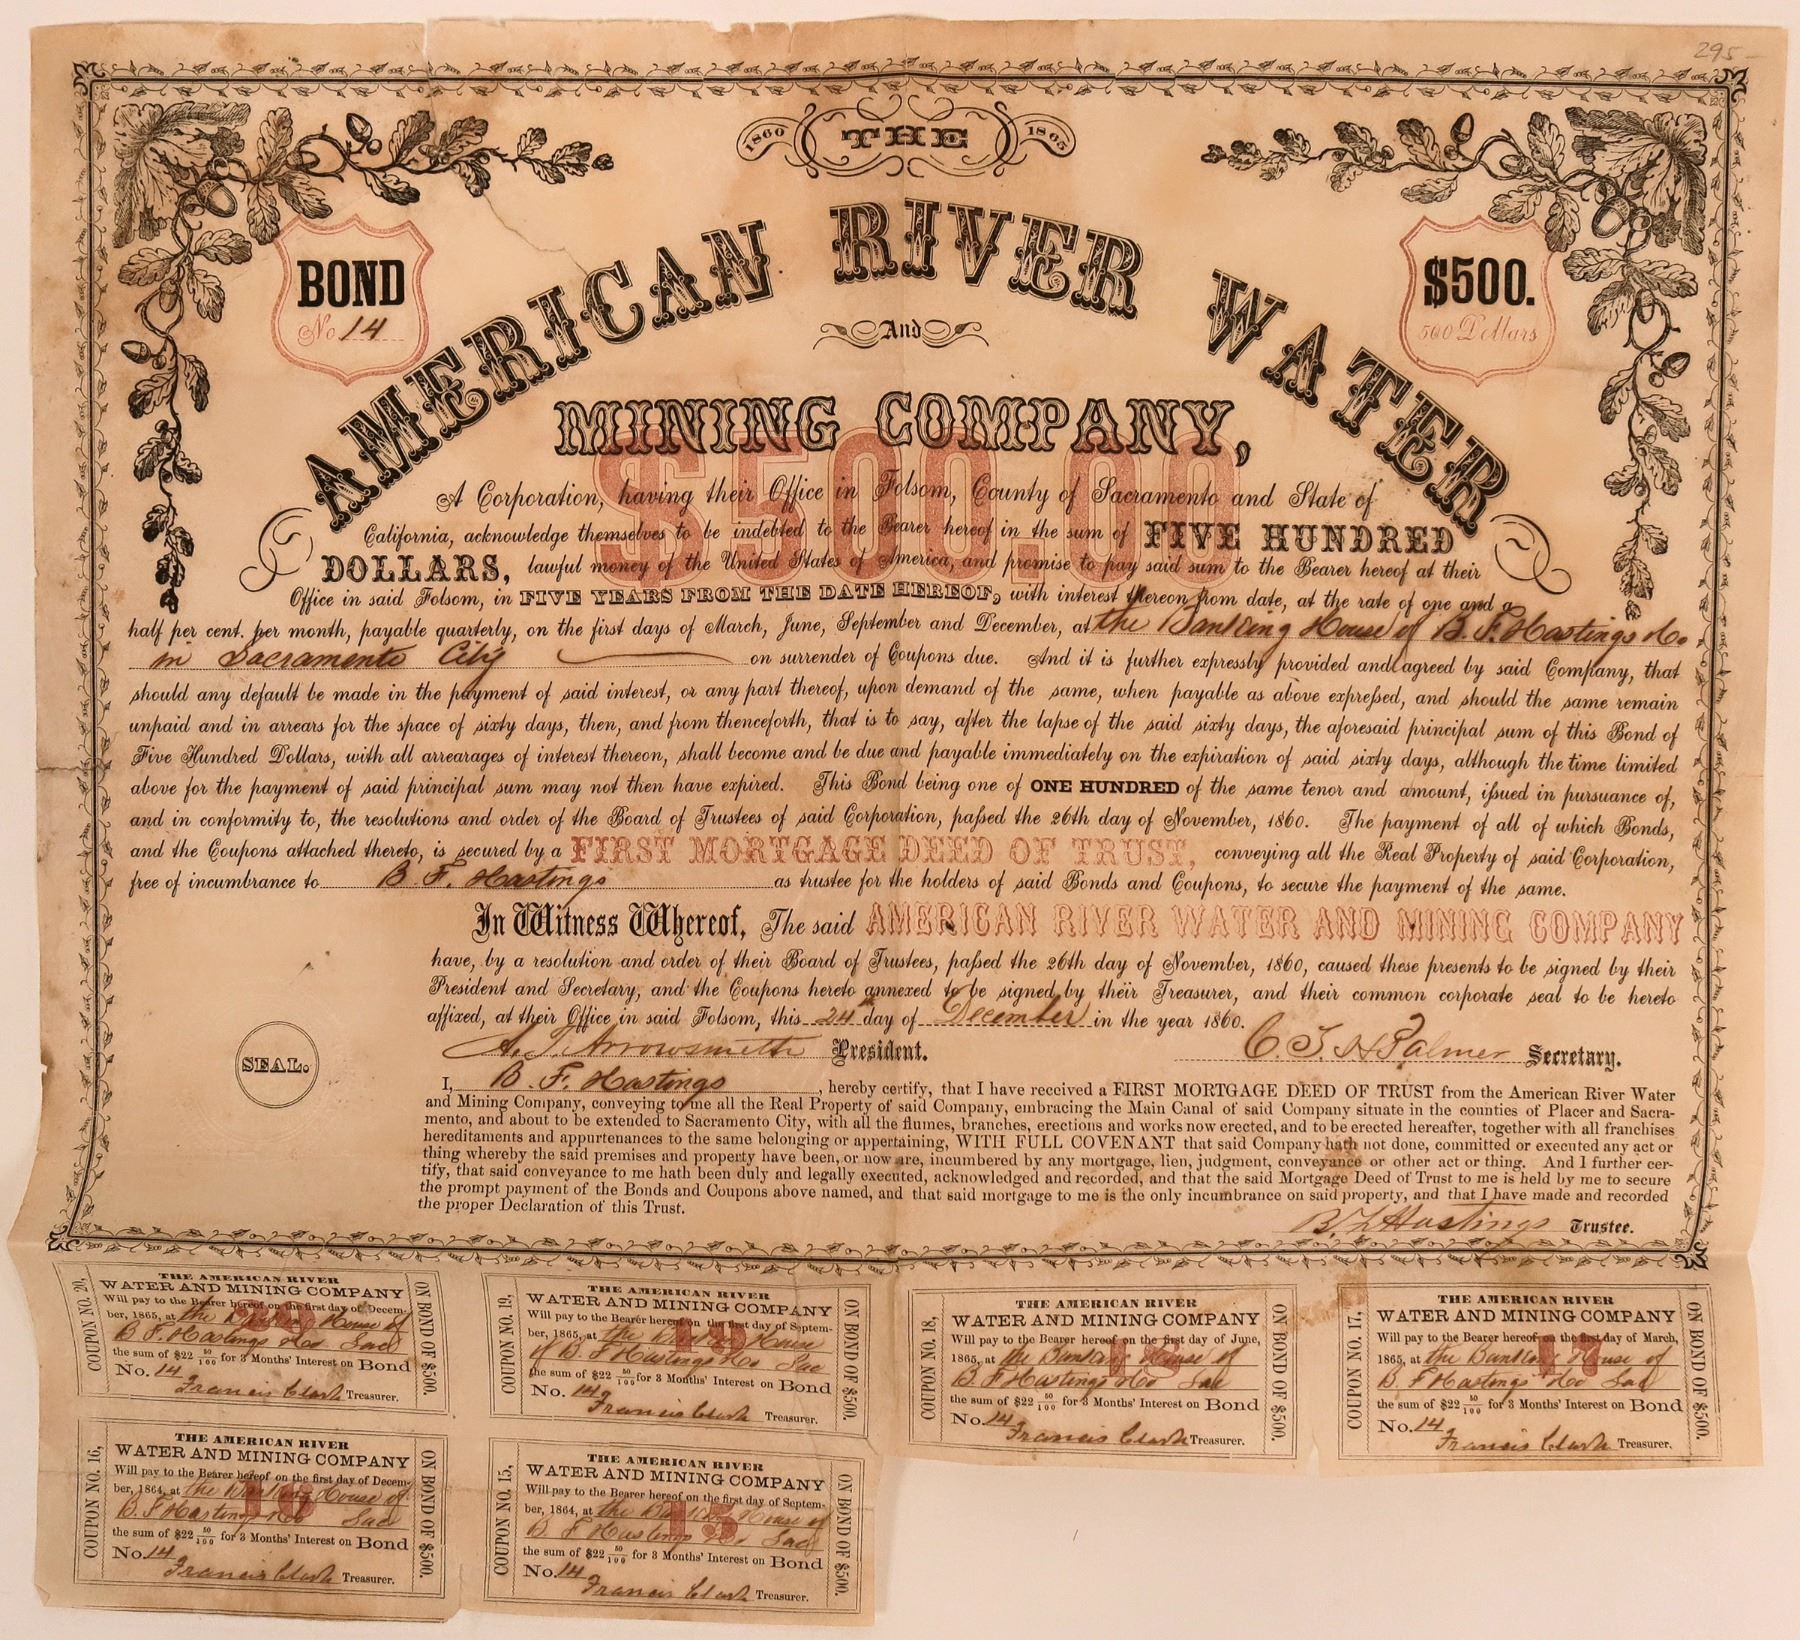 295
1860 THE 1865
AMERICAN RIVER WATER
And
MINING COMPANY,
BOND
No 14
$500.
500 Dollars
$500.00
A Corporation, having their Office in Folsom, County of Sacramento and State of
California, acknowledge themselves to be indebted to the Bearer hereof in the sum of FIVE HUNDRED
DOLLARS, lawful money of the United States of America, and promise to pay said sum to the Bearer hereof at their
Office in said Folsom, in FIVE YEARS FROM THE DATE HEREOF, with interest thereon from date, at the rate of one and a
half per cent. per month, payable quarterly, on the first days of March, June, September and December, at the Banking House of B. F. Hastings & Co
in Sacramento City on surrender of Coupons due. And it is further expressly provided and agreed by said Company, that
should any default be made in the payment of said interest, or any part thereof, upon demand of the same, when payable as above expressed, and should the same remain
unpaid and in arrears for the space of sixty days, then, and from thenceforth, that is to say, after the lapse of the said sixty days, the aforesaid principal sum of this Bond of
Five Hundred Dollars, with all arrearages of interest thereon, shall become and be due and payable immediately on the expiration of said sixty days, although the time limited
above for the payment of said principal sum may not then have expired. This Bond being one of ONE HUNDRED of the same tenor and amount, issued in pursuance of,
and in conformity to, the resolutions and order of the Board of Trustees of said Corporation, passed the 26th day of November, 1860. The payment of all of which Bonds,
and the Coupons attached thereto, is secured by a FIRST MORTGAGE DEED OF TRUST, conveying all the Real Property of said Corporation,
free of incumbrance to B. F. Hastings as trustee for the holders of said Bonds and Coupons, to secure the payment of the same.
In Witness Whereof, The said AMERICAN RIVER WATER AND MINING COMPANY
have, by a resolution and order of their Board of Trustees, passed the 26th day of November, 1860, caused these presents to be signed by their
President and Secretary, and the Coupons hereto annexed to be signed by their Treasurer, and their common corporate seal to be hereto
affixed, at their Office in said Folsom, this 24 day of December in the year 1860.
A. T. Arrowsmith President. C. T. H Palmer Secretary.
SEAL.
I, B. F. Hastings, hereby certify, that I have received a FIRST MORTGAGE DEED OF TRUST from the American River Water
and Mining Company, conveying to me all the Real Property of said Company, embracing the Main Canal of said Company situate in the counties of Placer and Sacra-
mento, and about to be extended to Sacramento City, with all the flumes, branches, erections and works now erected, and to be erected hereafter, together with all franchises
hereditaments and appurtenances to the same belonging or appertaining, WITH FULL COVENANT that said Company hath not done, committed or executed any act or
thing whereby the said premises and property have been, or now are, incumbered by any mortgage, lien, judgment, conveyance or other act or thing. And I further cer-
tify, that said conveyance to me hath been duly and legally executed, acknowledged and recorded, and that the said Mortgage Deed of Trust to me is held by me to secure
the prompt payment of the Bonds and Coupons above named, and that said mortgage to me is the only incumbrance on said property, and that I have made and recorded
the proper Declaration of this Trust.
B. F. Hastings Trustee.
COUPON NO. 20,
THE AMERICAN RIVER
WATER AND MINING COMPANY
Will pay to the Bearer hereof on the first day of Decem-
ber, 1865, at the Banking House of
B F. Hastings & Co Sac
the sum of $22 50/100 for 3 Months' Interest on Bond
No. 14
Francis Clark Treasurer.
ON BOND OF $500.
20
COUPON NO. 19,
THE AMERICAN RIVER
WATER AND MINING COMPANY
Will pay to the Bearer hereof on the first day of Septem-
ber, 1865, at the Banking House
of B F Hastings & Co Sac
the sum of $22 50/100 for 3 Months' Interest on Bond
No. 14
Francis Clark Treasurer.
ON BOND OF $500.
19
COUPON NO. 18,
THE AMERICAN RIVER
WATER AND MINING COMPANY
Will pay to the Bearer hereof on the first day of June,
1865, at the Banking House of
B. F Hastings & Co Sac
the sum of $22 50/100 for 3 Months' Interest on Bond
No. 14
Francis Clark Treasurer.
ON BOND OF $500.
18
COUPON NO. 17,
THE AMERICAN RIVER
WATER AND MINING COMPANY
Will pay to the Bearer hereof on the first day of March,
1865, at the Banking House of
B. F Hastings & Co Sac
the sum of $22 50/100 for 3 Months' Interest on Bond
No. 14
Francis Clark Treasurer.
ON BOND OF $500.
17
COUPON NO. 16,
THE AMERICAN RIVER
WATER AND MINING COMPANY
Will pay to the Bearer hereof on the first day of Decem-
ber, 1864, at the Banking House of
B. F Hastings & Co Sac
the sum of $22 50/100 for 3 Months' Interest on Bond
No. 14
Francis Clark Treasurer.
ON BOND OF $500.
16
COUPON NO. 15,
THE AMERICAN RIVER
WATER AND MINING COMPANY
Will pay to the Bearer hereof on the first day of Septem-
ber, 1864, at the Banking House of
B F Hastings & Co Sac
the sum of $22 50/100 for 3 Months' Interest on Bond
No. 14
Francis Clark Treasurer.
ON BOND OF $500.
15